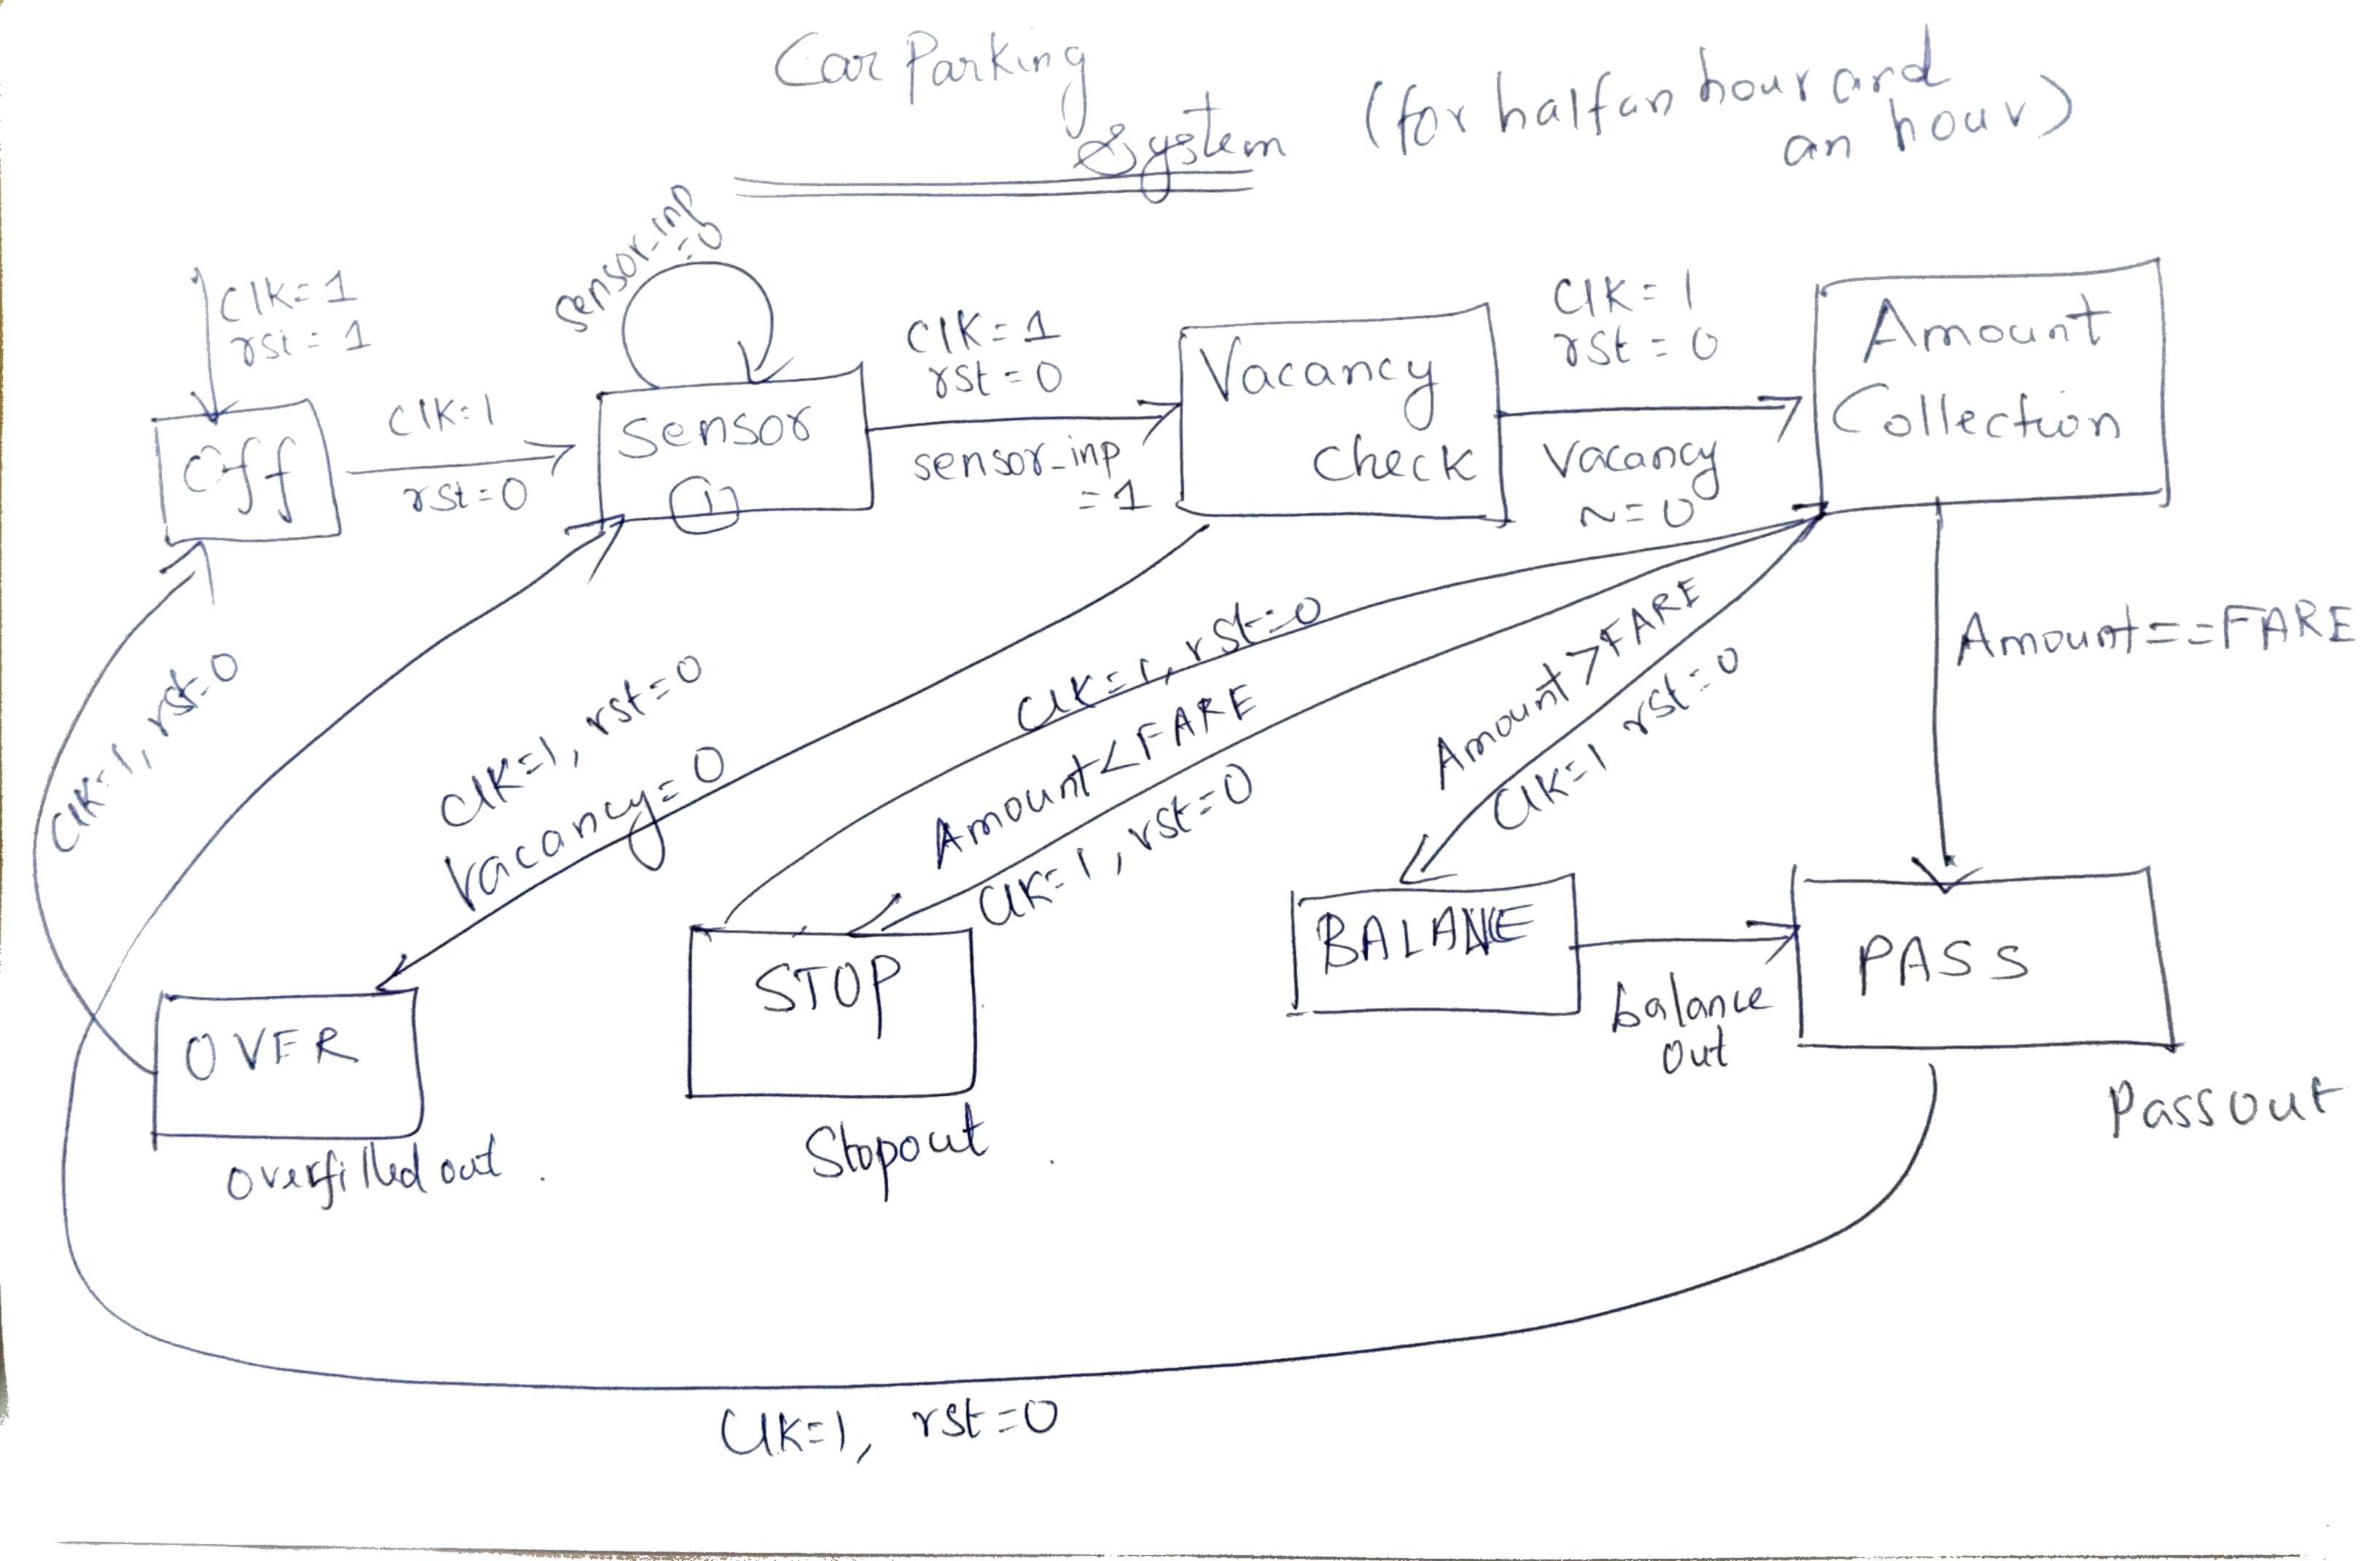 Car Parking
System
(for half an hour and
an hour)
sensor-inp
=0
Clk=1
rst=1
Off
Clk=1
rst=0
Sensor
1
Clk=1
rst=0
sensor-inp
=1
Vacancy
check
Clk=1
rst=0
Vacancy
~=0
Amount
Collection
Clk=1, rst=0
Clk=1, rst=0
Vacancy=0
Clk=1, rst=0
Amount<FARE
Clk=1, rst=0
Amount>FARE
Clk=1 rst=0
Amount==FARE
OVER
overfilled out.
STOP
Stopout.
BALANCE
balance
out
PASS
Passout
Clk=1, rst=0